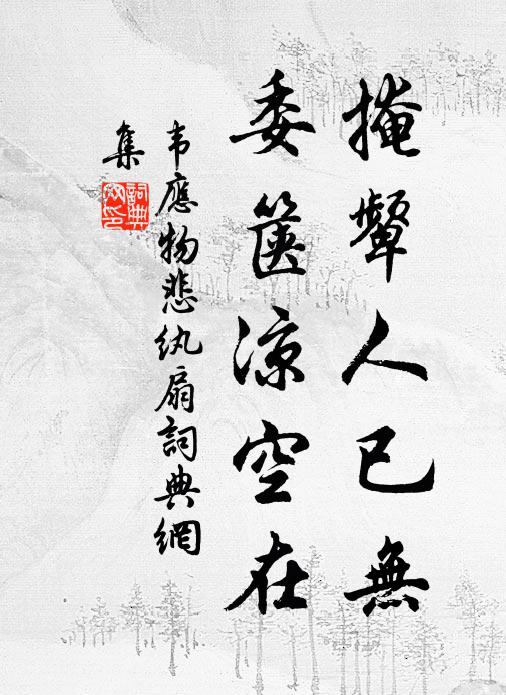 掩顰人已無
委篋涼空在
韦應物悲紈扇詞典網
集
詞典
网印